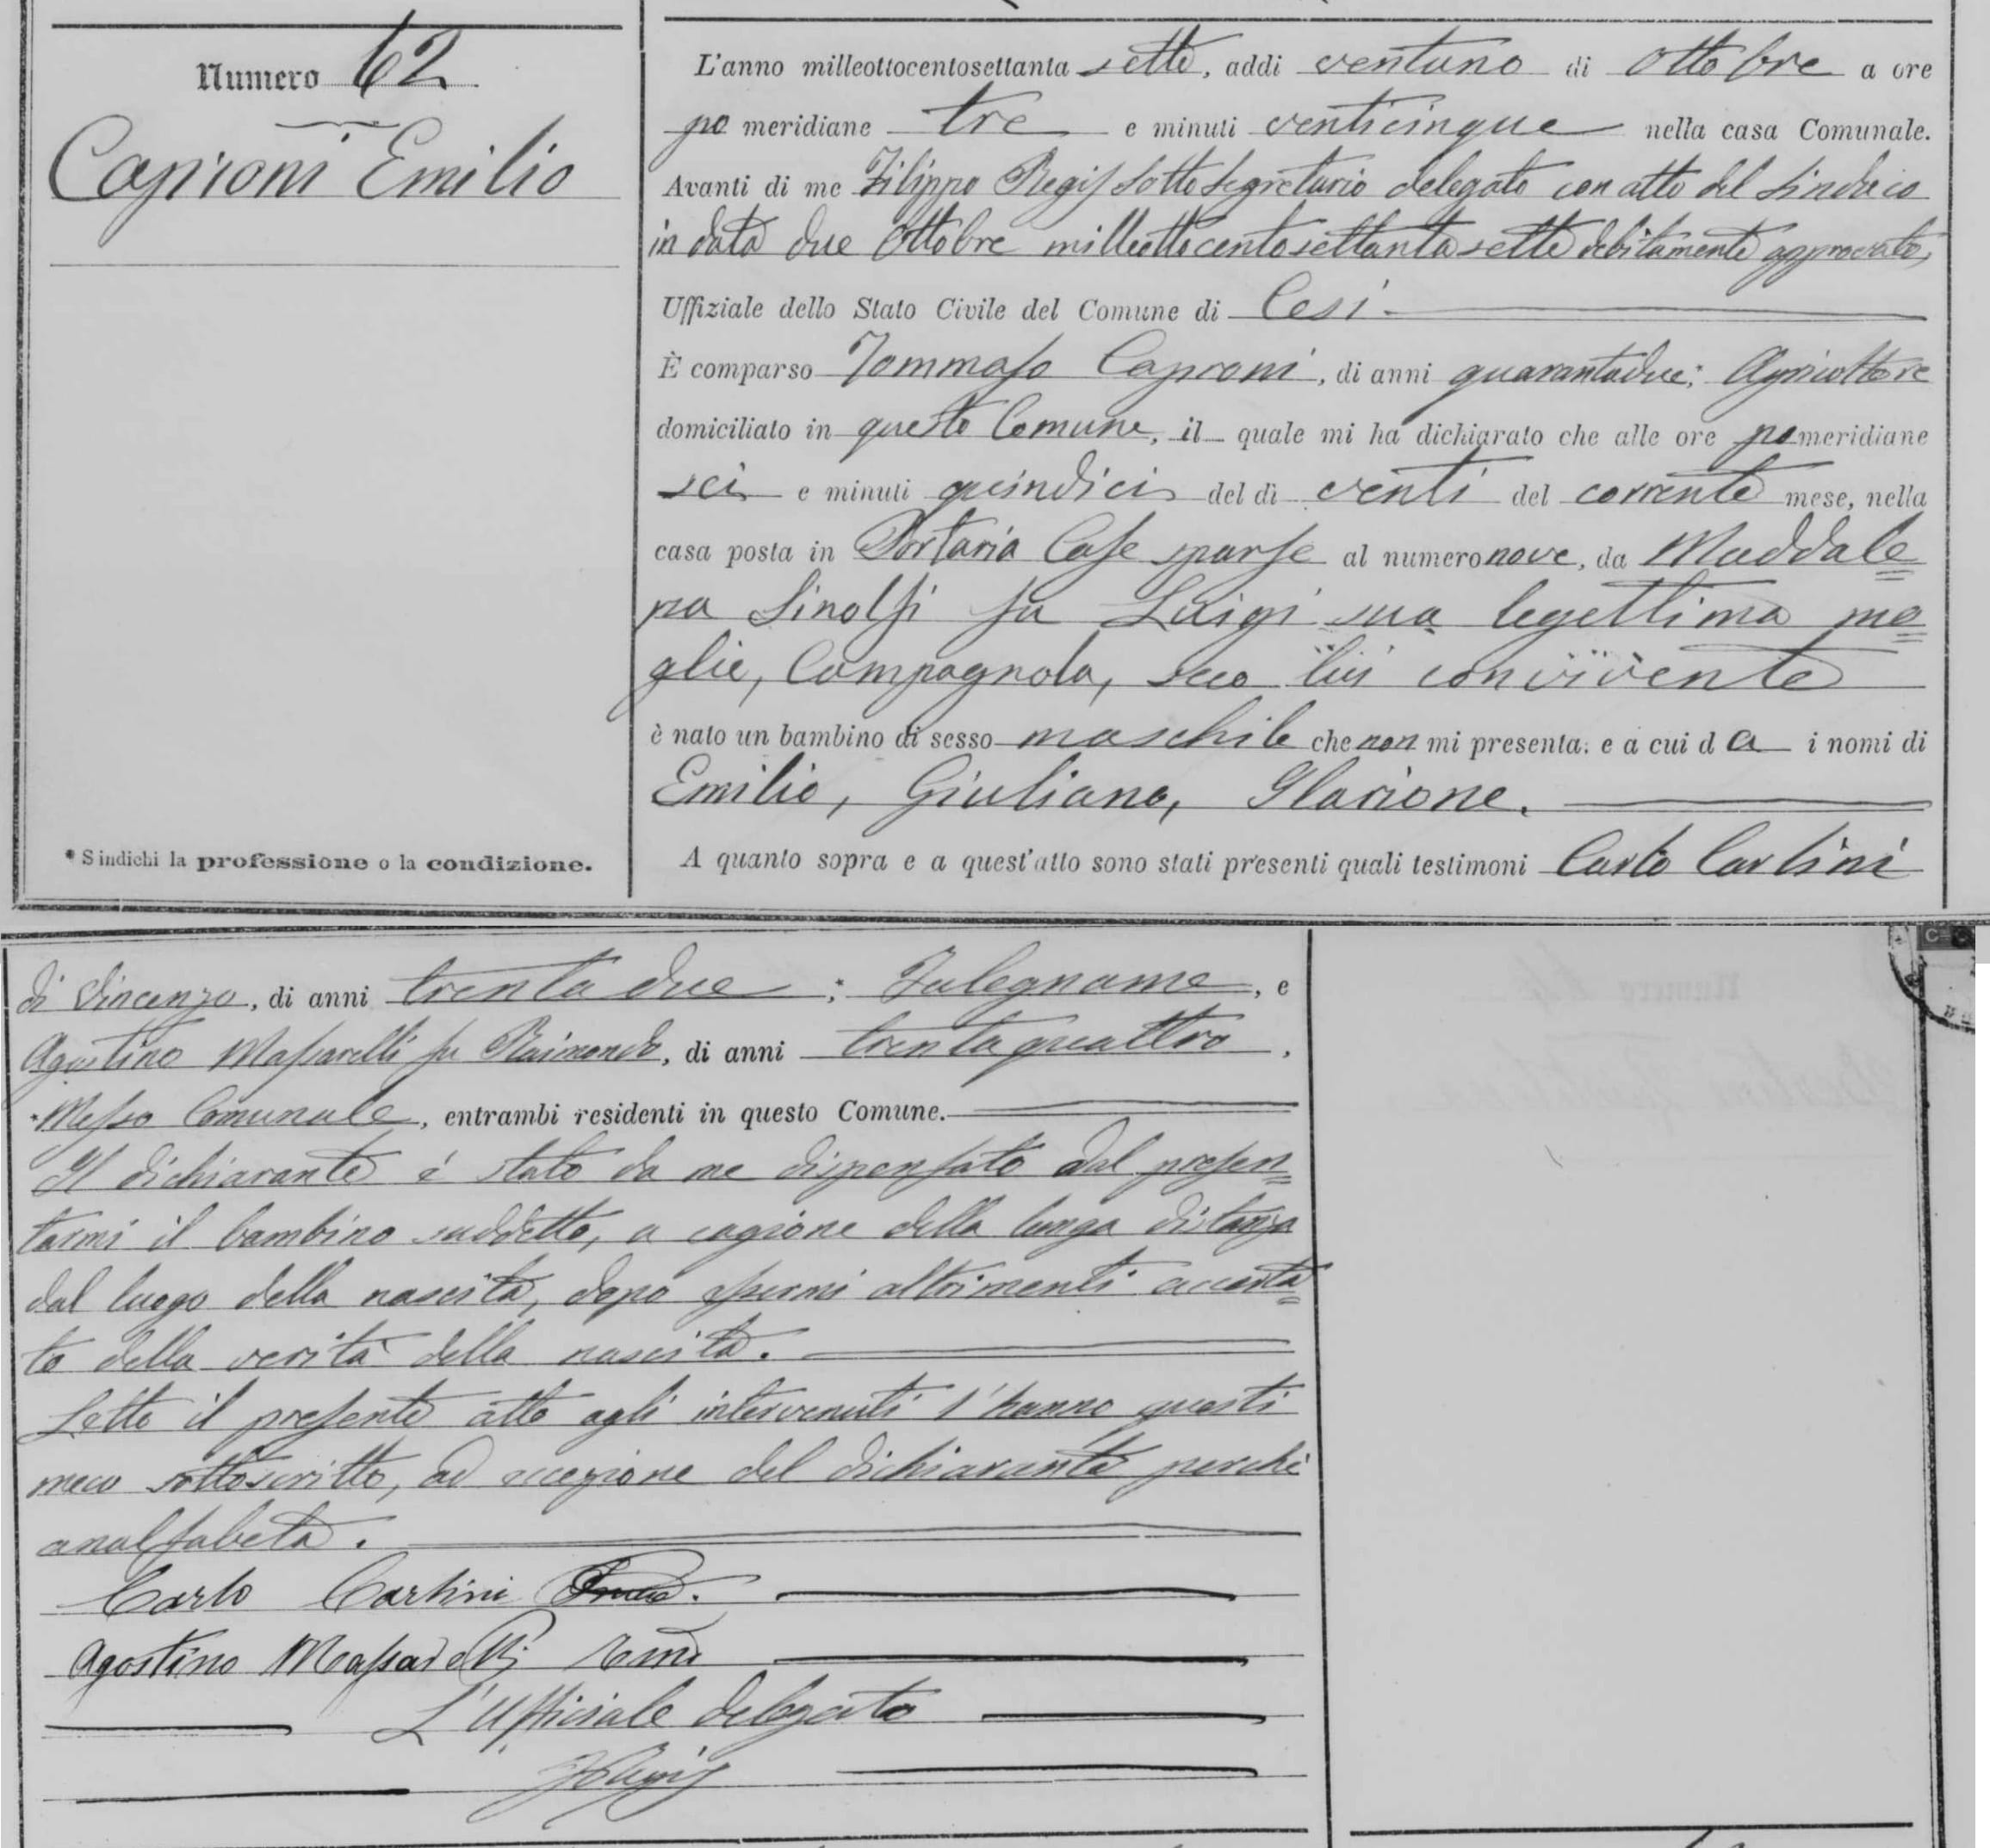 Numero 62
Caproni Emilio
* S'indichi la professione o la condizione.
L'anno milleottocentosettanta sette, addi ventuno di Ottobre a ore
po meridiane tre e minuti venticinque nella casa Comunale.
Avanti di me Filippo Regis Sotto Segretario delegato con atto del Sindaco
in data due Ottobre milleottocentosettantasette debitamente approvato,
Uffiziale dello Stato Civile del Comune di Cesi.
È comparso Tommaso Caproni, di anni quarantadue; Agricoltore
domiciliato in questo Comune, il quale mi ha dichiarato che alle ore pomeridiane
sei e minuti quindici del dì venti del corrente mese, nella
casa posta in Portaria Case sparse al numero nove, da Maddale=
na Sinolfi fu Luigi sua legettima mo=
glie, Campagnola, seco lui convivente
è nato un bambino di sesso maschile che non mi presenta, e a cui dà i nomi di
Emilio, Giuliano, Ilarione.
A quanto sopra e a quest'atto sono stati presenti quali testimoni Carlo Carlini
di Vincenzo, di anni trentadue; Falegname, e
Agostino Massarelli fu Raimondo, di anni trentaquattro,
Messo Comunale, entrambi residenti in questo Comune.
Il dichiarante è stato da me dispensato dal presen=
tarmi il bambino suddetto, a cagione della lunga distanza
dal luogo della nascita, dopo essermi altrimenti accerta=
to della verità della nascita.
Letto il presente atto agli intervenuti l'hanno questi
meco sottoscritto, ad eccezione del dichiarante perchè
analfabeta.
Carlo Carlini
Agostino Massarelli
L'Ufficiale delegato
FRegis